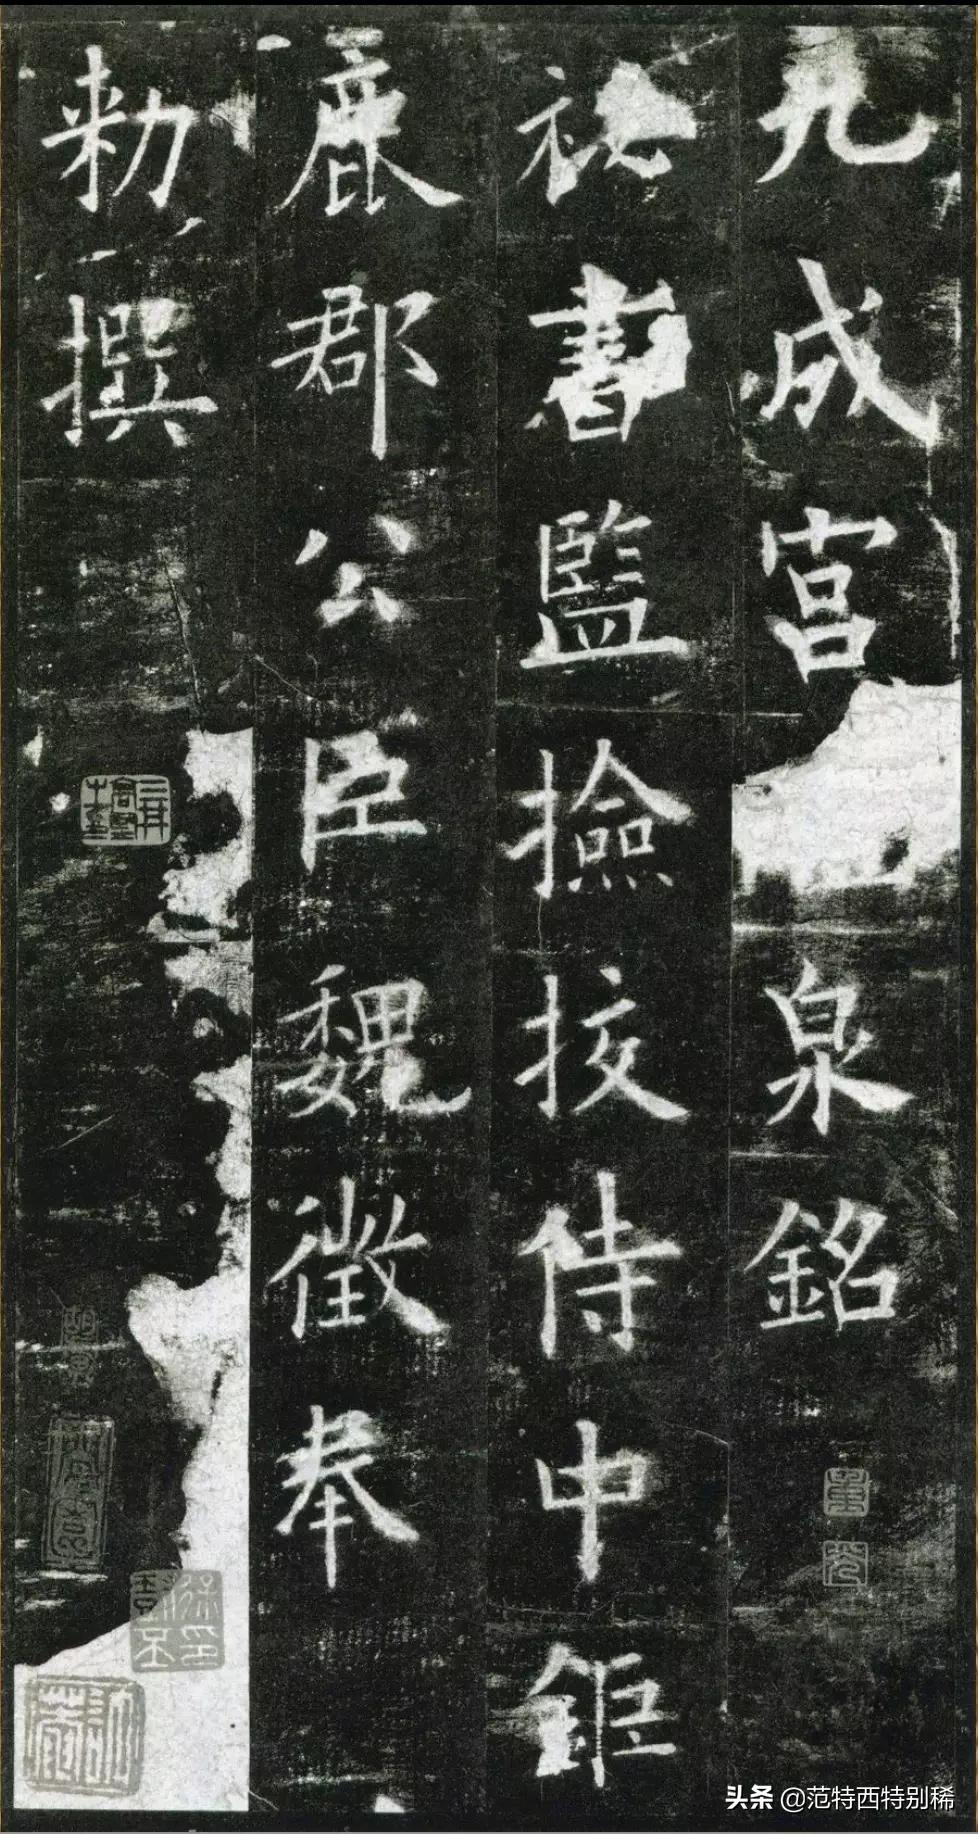 九成宫泉銘
祕書監撿挍侍中鉅
鹿郡公臣魏徵奉
勅撰
头条 @范特西特别稀